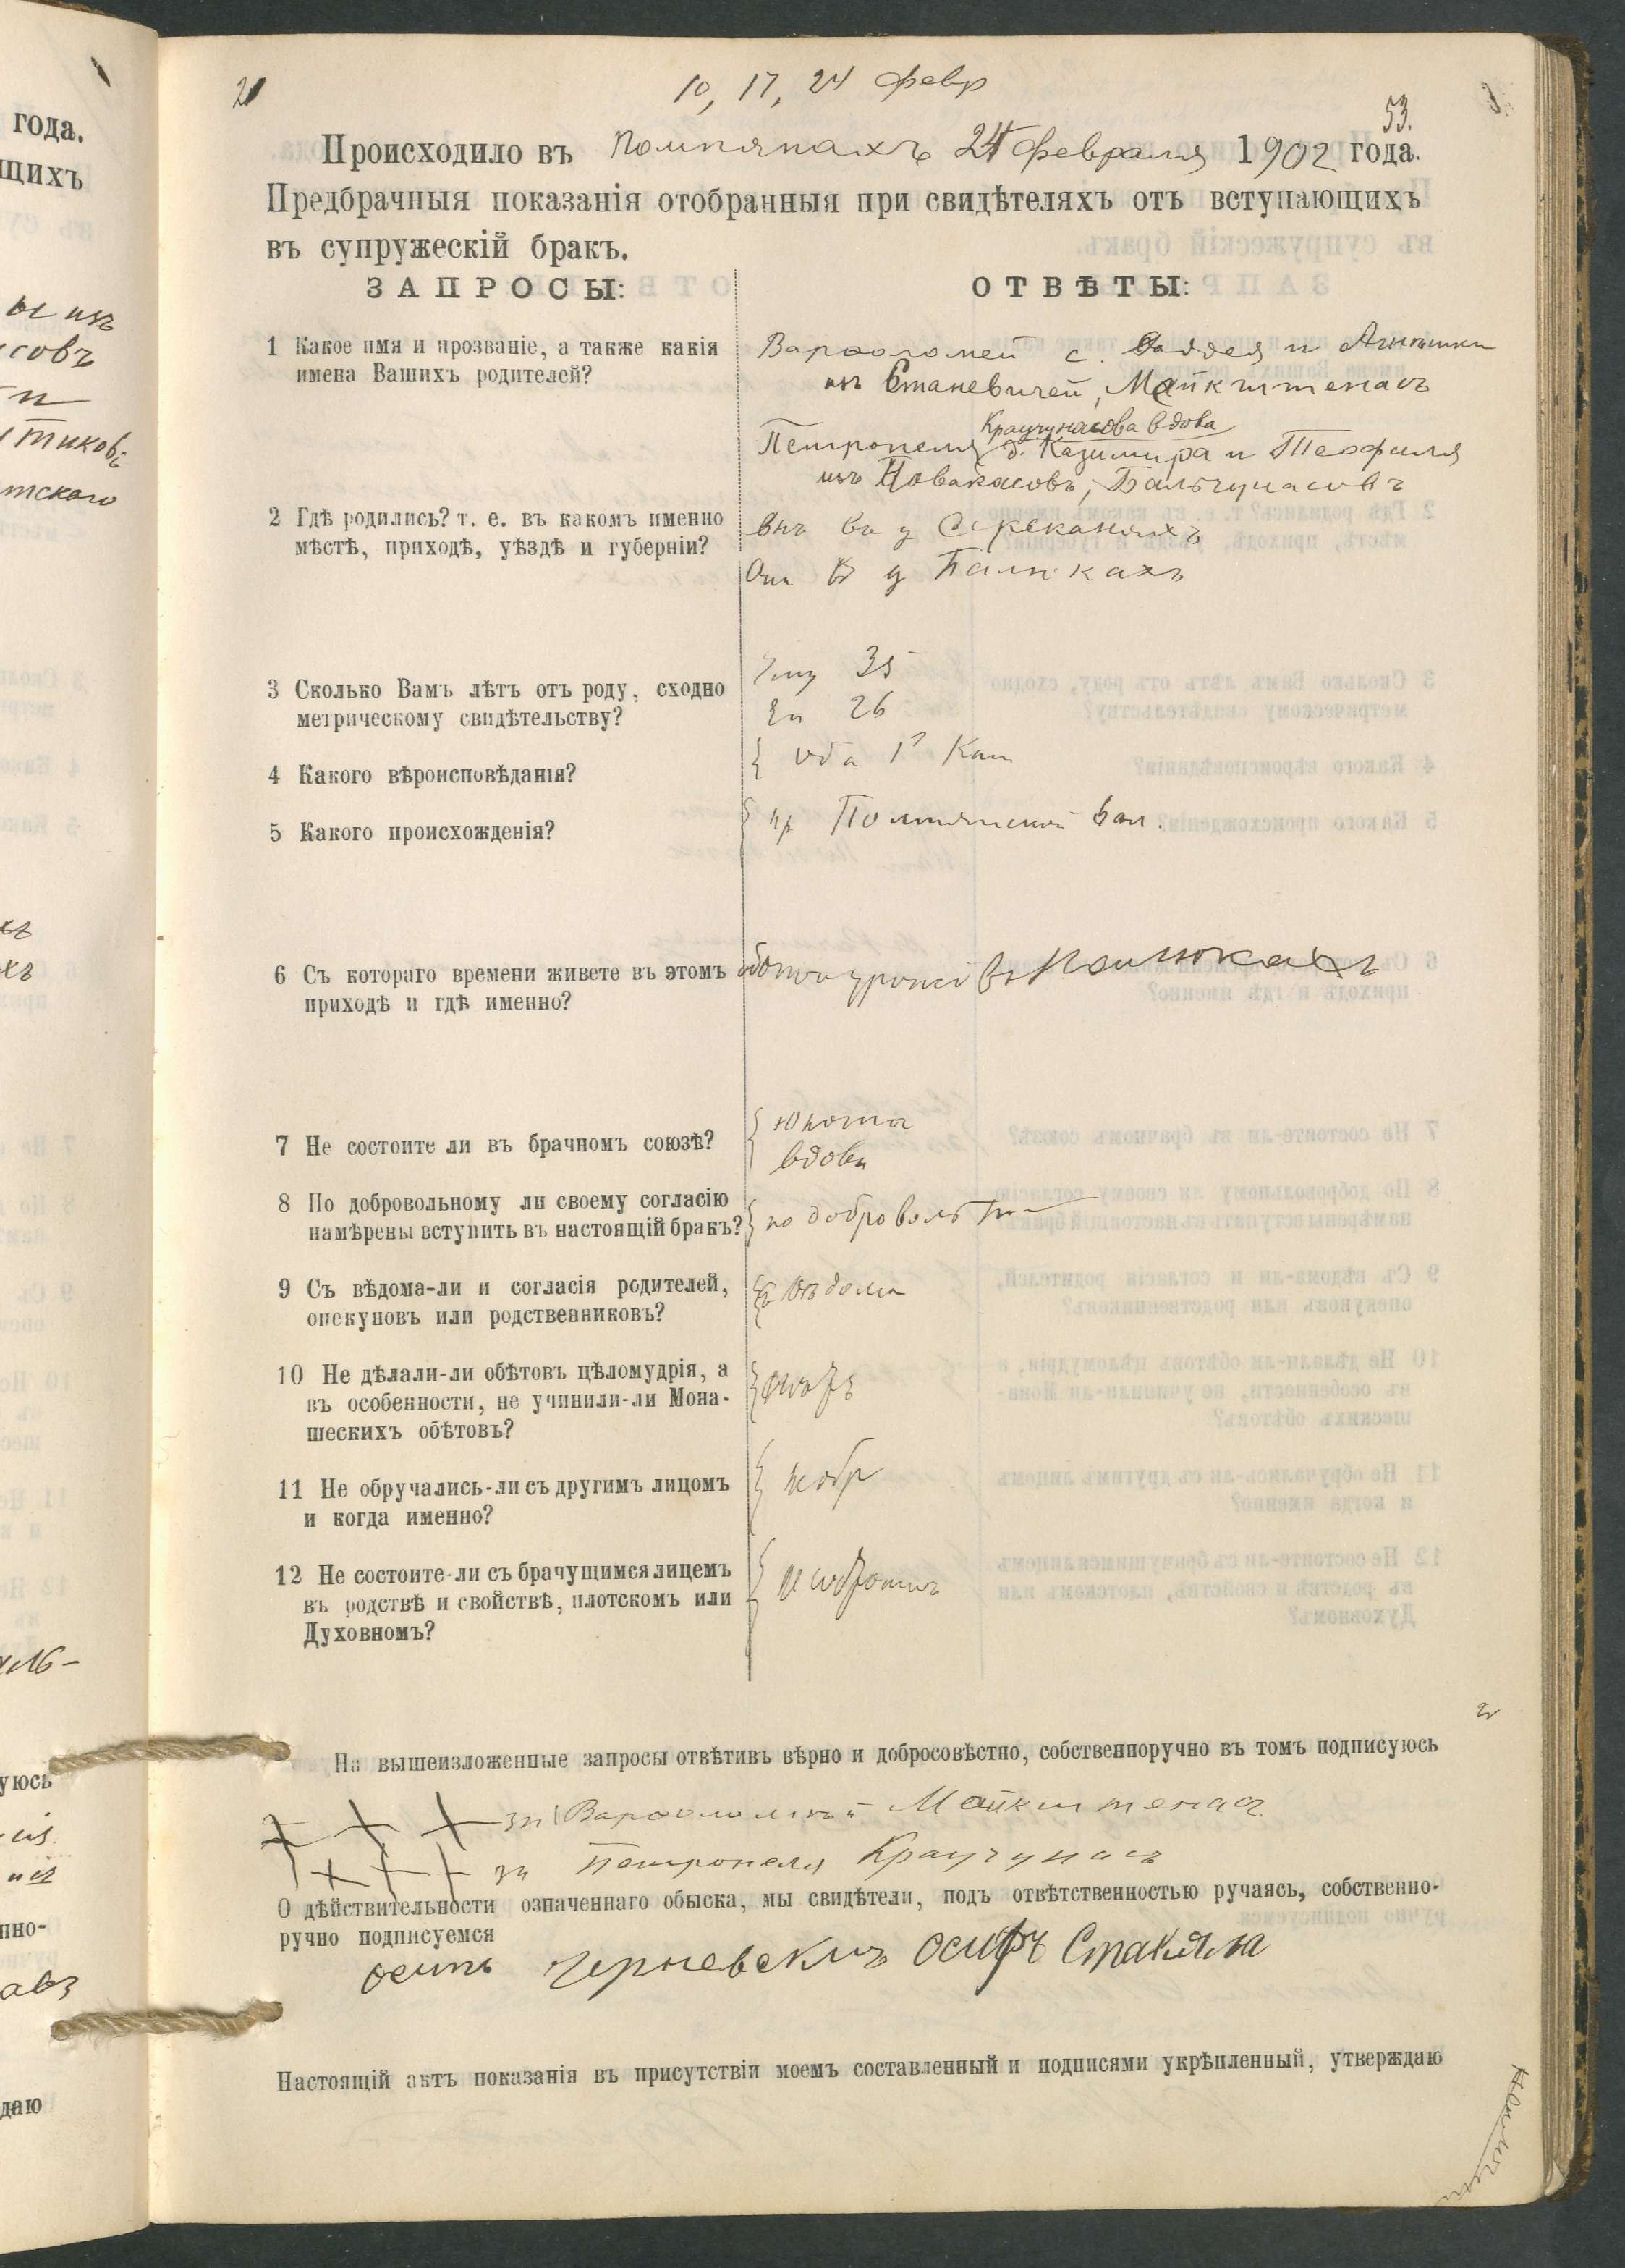 года.
щихъ
ы изъ
совъ
и
тиковъ
тского
уюсь
нно-
даю
10, 17, 24 февр
53.
Происходило въ Помпянахъ 24 февраля 1902 года.
Предбрачныя показанія отобранныя при свидѣтеляхъ отъ вступающихъ
въ супружескій бракъ.
ЗАПРОСЫ:
ОТВѢТЫ:
1 Какое имя и прозваніе, а также какія
имена Вашихъ родителей?
Варѳоломей с. Ѳаддея и Агнешки
изъ Станевичей, Майкштенасъ
Краучунасова вдова
Петронеля д. Казимира и Теофиля
изъ Новакасовъ, Бальчунасовъ
2 Гдѣ родились? т. е. въ какомъ именно
мѣстѣ, приходѣ, уѣздѣ и губерніи?
Онъ въ
Она въ
3 Сколько Вамъ лѣтъ отъ роду, сходно
метрическому свидѣтельству?
Ему 35
Ей 26
4 Какого вѣроисповѣданія?
оба Р Кат
5 Какого происхожденія?
кр Помпянской вол.
6 Съ котораго времени живете въ этомъ
приходѣ и гдѣ именно?
7 Не состоите ли въ брачномъ союзѣ?
юноша
вдова
8 По добровольному ли своему согласію
намѣрены вступить въ настоящій бракъ?
по добровольн
9 Съ вѣдома-ли и согласія родителей,
опекуновъ или родственниковъ?
съ вѣдома
10 Не дѣлали-ли обѣтовъ цѣломудрія, а
въ особенности, не учинили-ли Мона-
шескихъ обѣтовъ?
11 Не обручались-ли съ другимъ лицомъ
и когда именно?
не обр
12 Не состоите-ли съ брачущимся лицемъ
въ родствѣ и свойствѣ, плотскомъ или
Духовномъ?
На вышеизложенные запросы отвѣтивъ вѣрно и добросовѣстно, собственноручно въ томъ подписуюсь
+ + + за Варѳоломей Майкштенас
+ + + за Петронеля Краучунасъ
О дѣйствительности означеннаго обыска, мы свидѣтели, подъ отвѣтственностью ручаясь, собственно-
ручно подписуемся
осипъ Черневскисъ Осифъ
Настоящій актъ показанія въ присутствіи моемъ составленный и подписями укрѣпленный, утверждаю